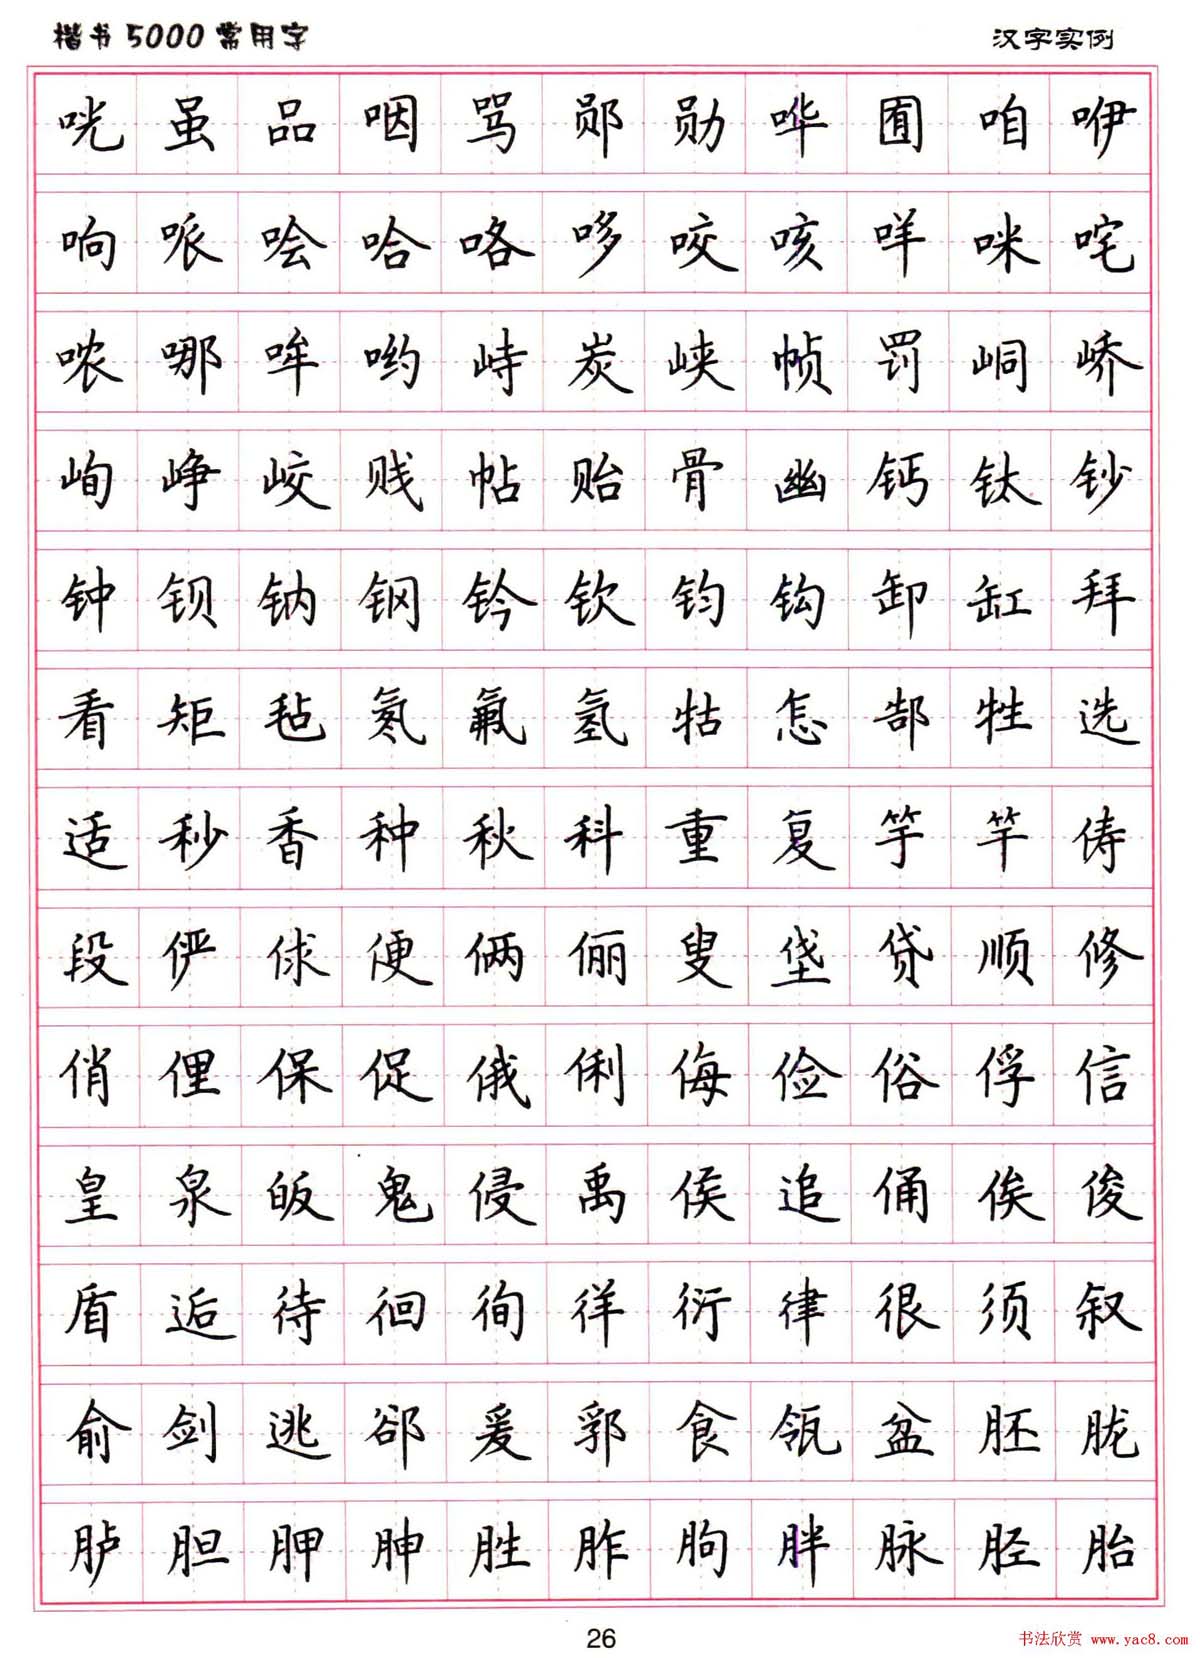 楷书5000常用字 汉字实例
咣虽品咽骂郧勋哗囿咱咿
响哌哙哈咯哆咬咳咩咪咤
哝哪哞哟峙炭峡帧罚峒峤
峋峥峧贱帖贻骨幽钙钛钞
钟钡钠钢钤钦钧钩卸缸拜
看矩毡氡氟氢牯怎郜牲选
适秒香种秋科重复竽竿俦
段俨俅便俩俪叟垡贷顺修
俏俚保促俄俐侮俭俗俘信
皇泉皈鬼侵禹侯追俑俟俊
盾逅待徊徇徉衍律很须叙
俞剑逃郤爰郛食瓴盆胚胧
胪胆胛胂胜胙朐胖脉胫胎
26
书法欣赏 www.yac8.com